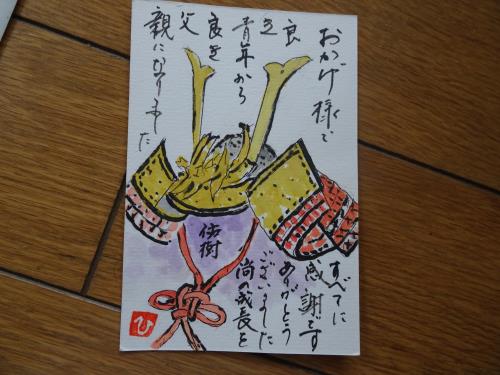 おかげ様で
良き
青年から
良き
父
親になりました
佑樹
すべてに
感謝です
ありがとう
ございました
尚の成長を
ひ